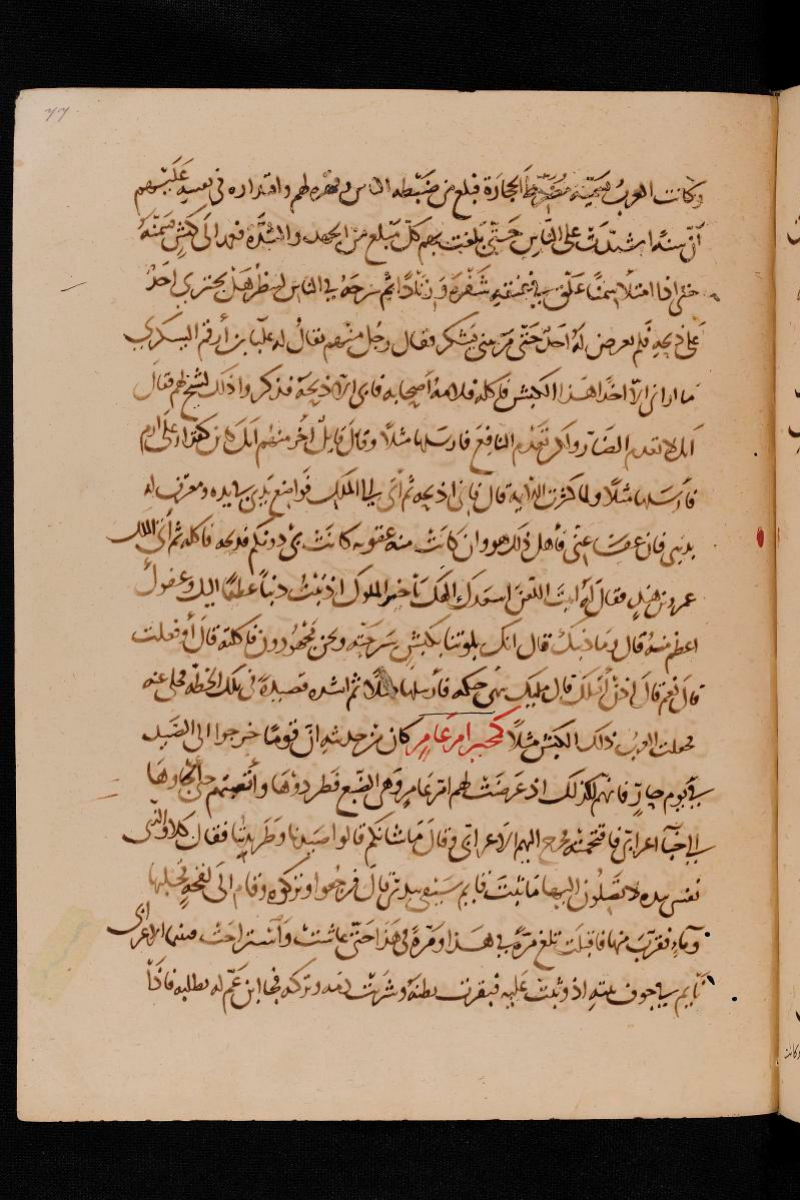 ٧٧
وكانت العرب تسميه مضرط الحجارة فبلغ من ضبطه الناس وقهره لهم واقتداره في نفسه عليهم
أنّ سنة اشتدّت على الناس حتى بلغت بهم كل مبلغ من الجهد والشدّة فعمد الى كبش فسمنه
حتى اذا امتلأ سمنًا علّق في عنقه شفرة وزنادًا ثم سرحه في الناس لينظر هل يجتري احدٌ
على ذبحه فلم يعرض له احد حتى مرّ ببني يشكر فقال رجل منهم يقال له علبا بن أرقم اليشكري
ما اراني إلاّ آخذًا هذا الكبش فآكله فلامه اصحابه فابى الا ذبحه فذكروا ذلك لشيخ لهم فقال
انك لا تعدم الضارّ ولكن تعدم النافع فارسلها مثلاً وقال قايل آخر منهم انك كاين كقدار على ارم
فأرسلها مثلا ولما كثرت اللايمة قال فاني اذبحه ثم آتي الملك فواضع يدي في يده ومعترف له
بذنبي فان عفى عني فأهل ذلك هو وان كانت منه عقوبه كانت بي دونكم فذبحه فاكله ثم أتى الملك
عمرو بن هند فقال له ابيت اللعن اسعدك الهك يا خير الملوك اذنبت ذنباً عظيمًا اليك وعفوك
اعظم منه قال وما ذنبك قال انك بلوتنا بكبش سرحته ونحن مجهودون فاكلته قال أوفعلت
قال نعم قال اذن أقتلك قال مليك شيء حكمه فأرسلها مثلاً ثم انشده قصيدة في تلك الخطّة فخلى عنه
فجعلت العرب ذلك الكبش مثلاً كمجير ام عامر كان من حديثه انّ قومًا خرجوا الى الصّيد
في يوم حارّ فانهم لكذلك اذ عرضت لهم ام عامر وهي الضبع فطردوها وأتعبتهم حتى الجاوها
الى خبآ اعرابي فاقتحمته فخرج اليهم الاعرابي وقال ما شانكم قالوا صيدنا وطريدتنا فقال كلا والذي
نفسي بيده لا تصلون اليها ما ثبت قايم سيفي بيدي قال فرجعوا وتركوه وقام الى لقحةٍ فحلبها
وماء فقرّب منها فاقبلت تلغ مرّة في هذا ومرّة في هذا حتى عاشت واستراحت فبينما الاعرابي
نايم في جوف بيته اذ وثبت عليه فبقرت بطنه وشربت دمه وتركته فجا ابن عم له يطلبه فاذا